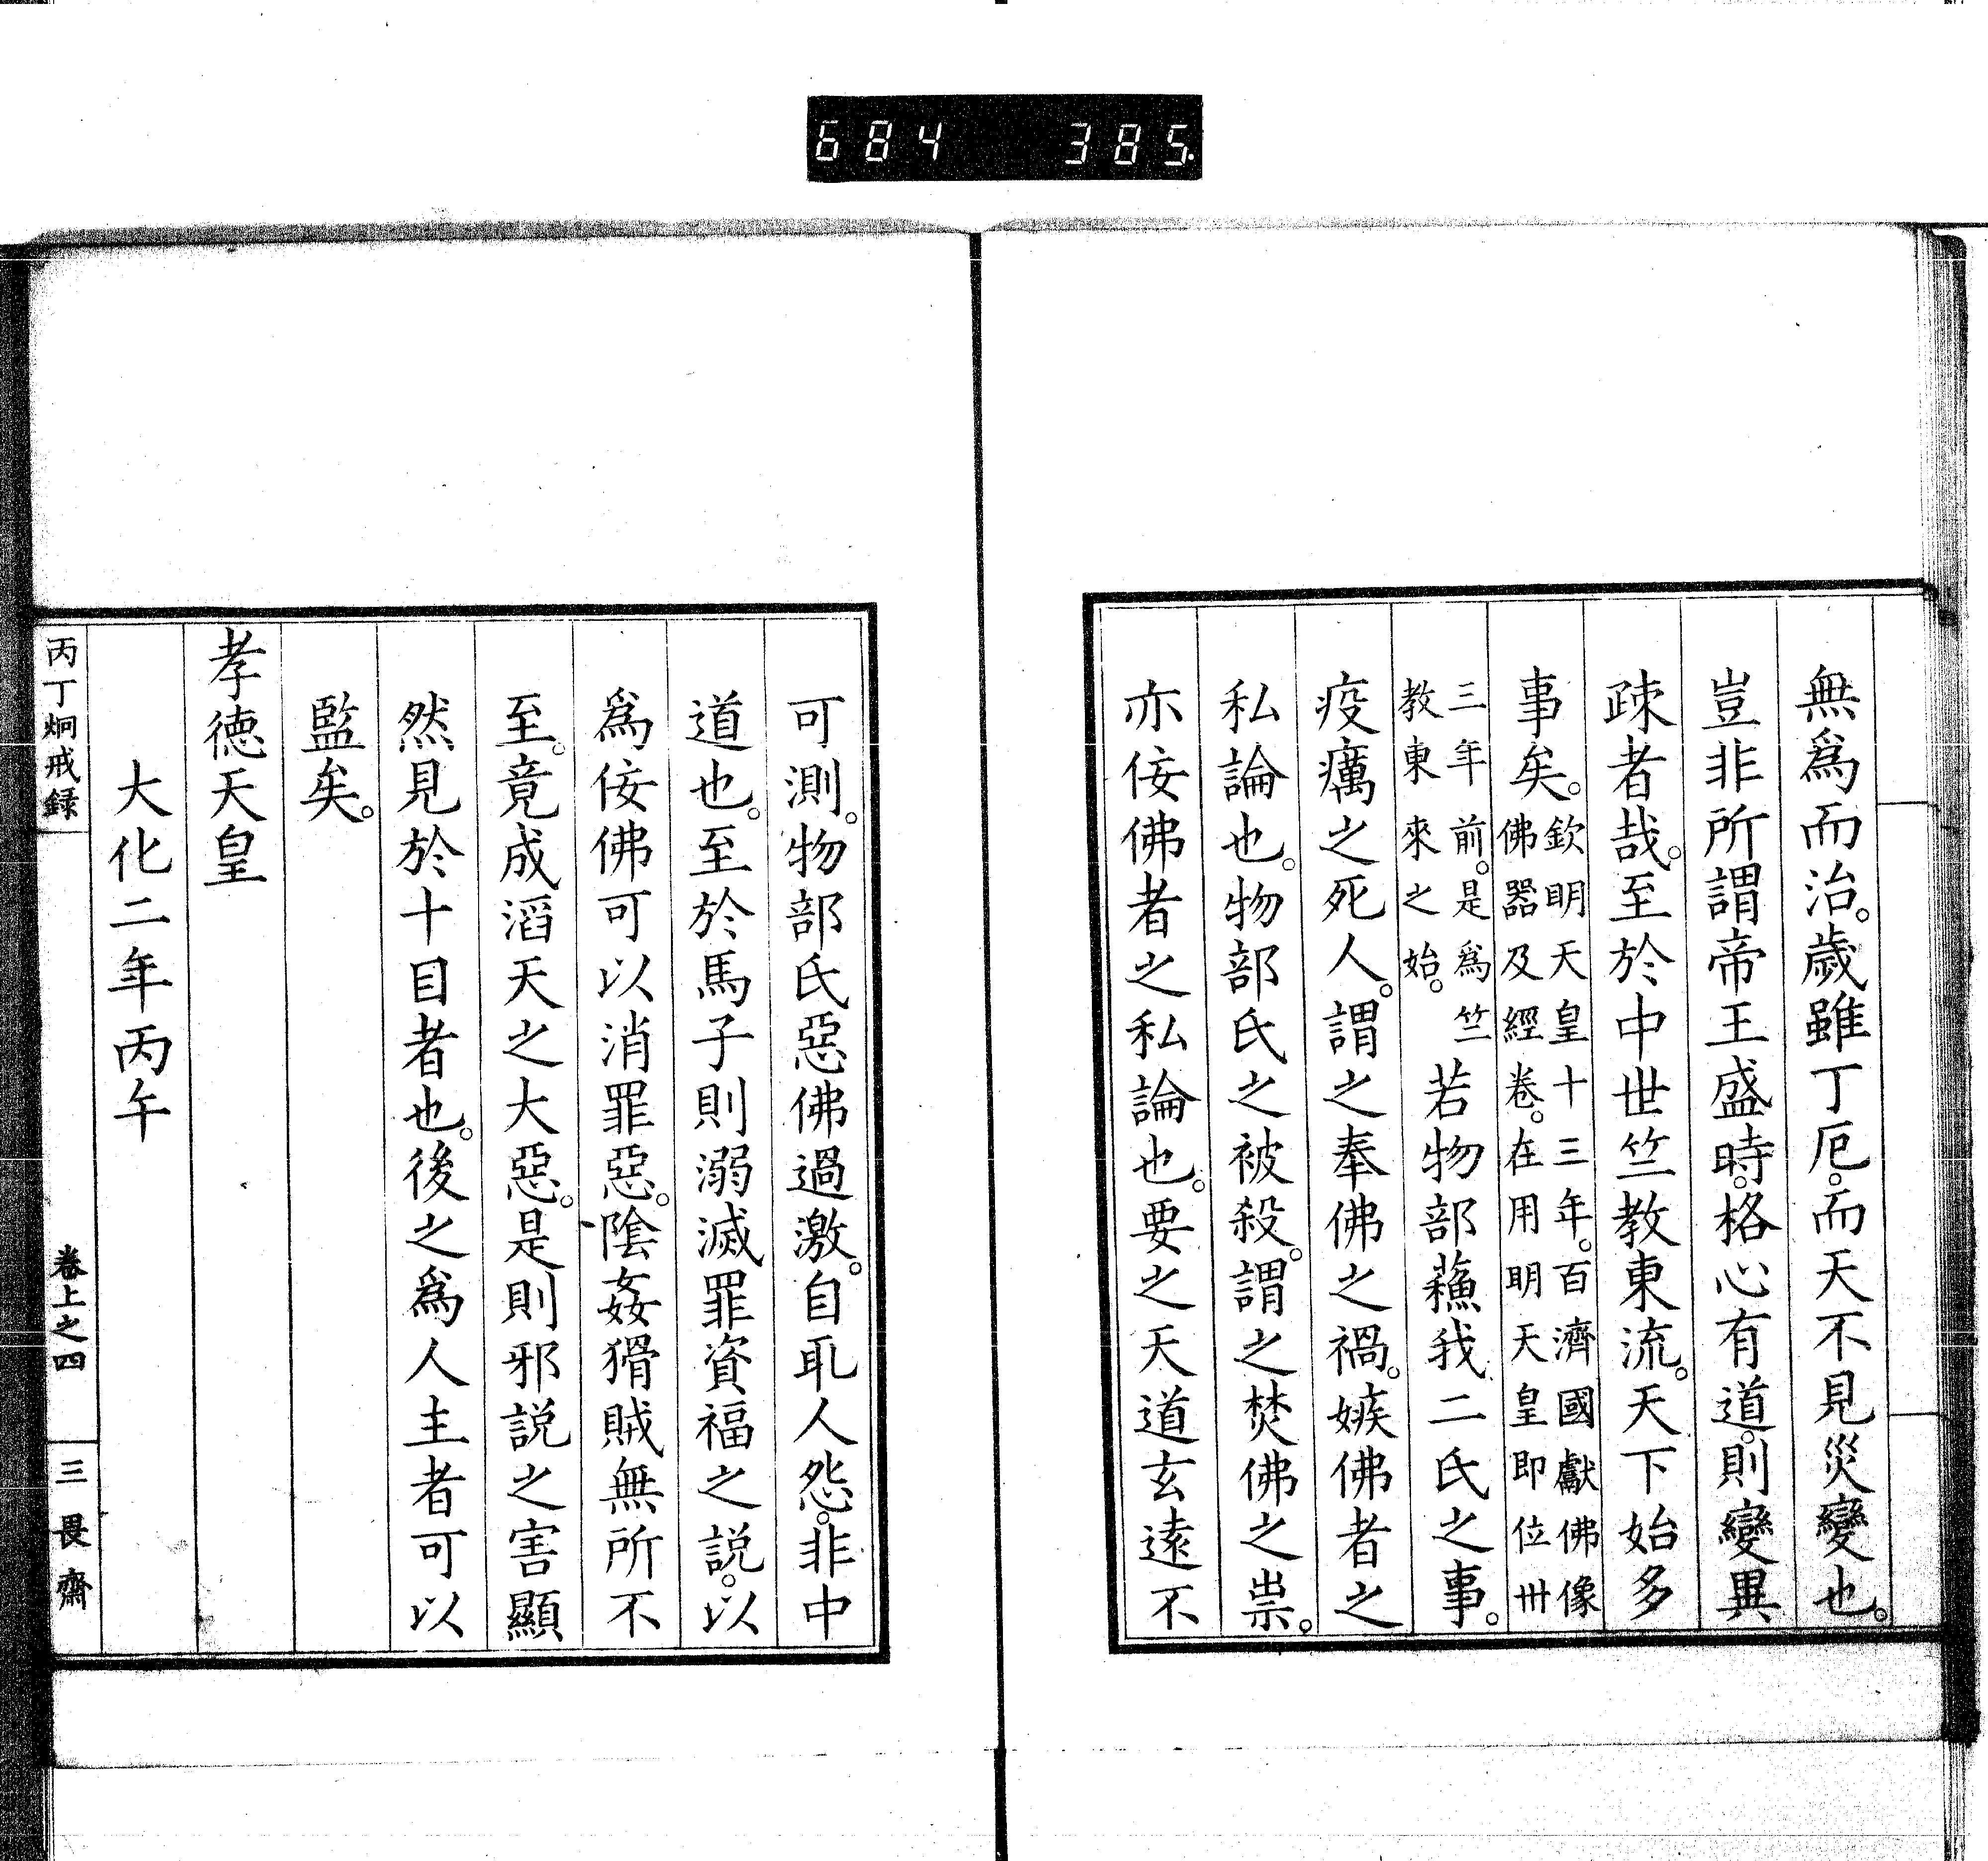 684 385
無爲而治。歲雖丁厄。而天不見災變也。
豈非所謂帝王盛時。格心有道。則變異
疎者哉。至於中世竺教東流。天下始多
事矣。欽明天皇十三年。百濟國獻佛像
佛器及經卷。在用明天皇即位卅
三年前。是爲竺
教東來之始。若物部蘓我二氏之事。
疫癘之死人。謂之奉佛之禍。嫉佛者之
私論也。物部氏之被殺。謂之焚佛之祟。
亦佞佛者之私論也。要之天道玄遠不
可測。物部氏惡佛過激。自取人怨。非中
道也。至於馬子則溺滅罪資福之説。以
爲佞佛可以消罪惡。陰姦猾賊無所不
至。竟成滔天之大惡。是則邪説之害顯
然見於十目者也。後之爲人主者可以
監矣。
孝徳天皇
大化二年丙午
丙丁烱戒録
卷上之四
三畏齋